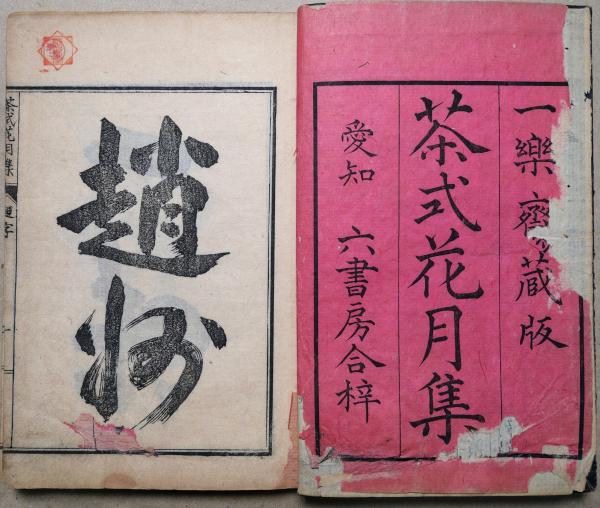 一樂齋藏版
茶式花月集
愛知 六書房合梓
趙州
茶式花月集